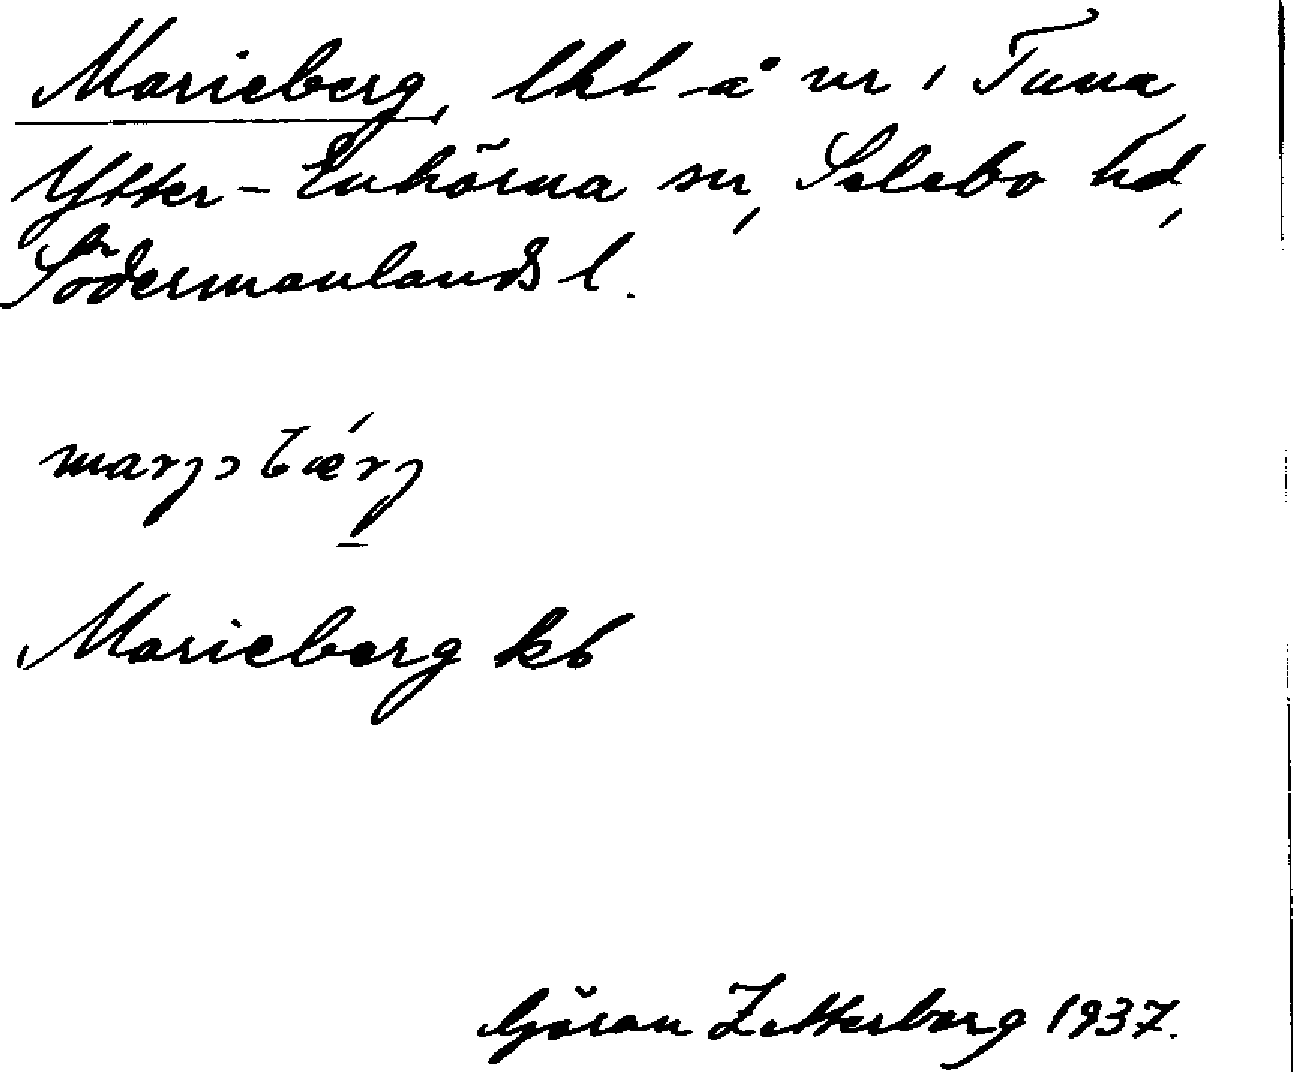 Marieberg, lht å nr 1 Tuna
Ytter-Enhörna sn, Selebo hd,
Södermanlands l.
marjɔbǽrj
Marieberg kb
Göran Zetterberg 1937.